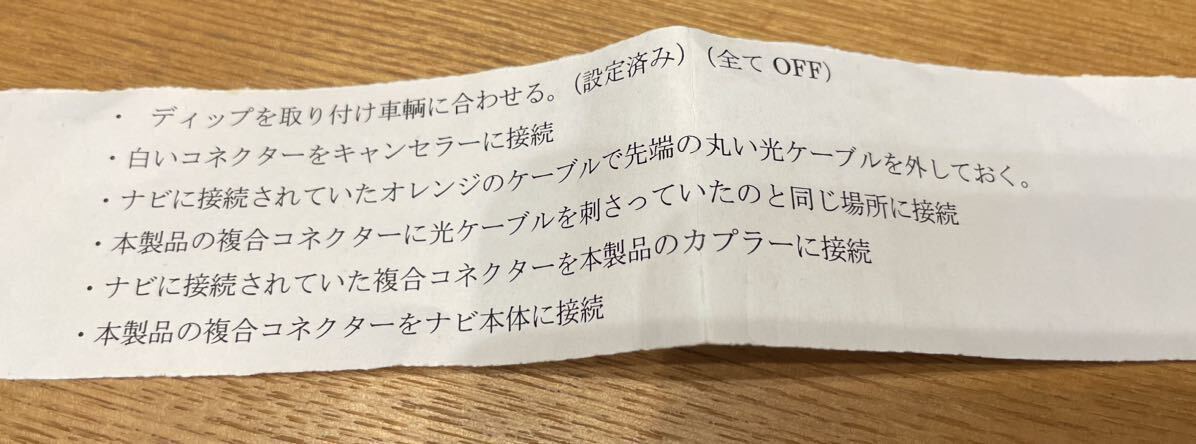 ・ ディップを取り付け車輌に合わせる。（設定済み）（全て OFF）
・白いコネクターをキャンセラーに接続
・ナビに接続されていたオレンジのケーブルで先端の丸い光ケーブルを外しておく。
・本製品の複合コネクターに光ケーブルを刺さっていたのと同じ場所に接続
・ナビに接続されていた複合コネクターを本製品のカプラーに接続
・本製品の複合コネクターをナビ本体に接続